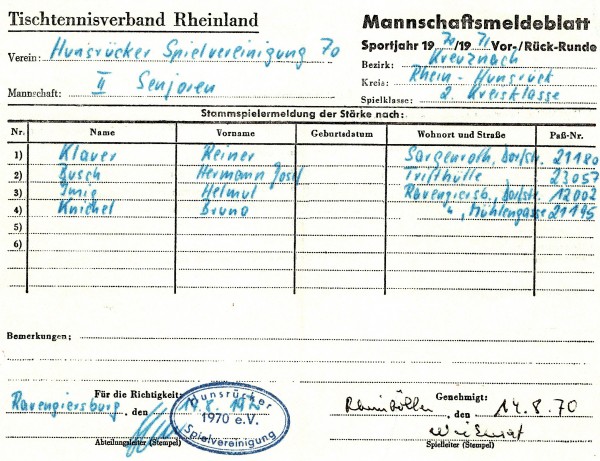 Tischtennisverband Rheinland
Mannschaftsmeldeblatt
Sportjahr 1970/1971 Vor-/Rück-Runde
Verein: Hunsrücker Spielvereinigung 70
Bezirk: Kreuznach
Kreis: Rhein-Hunsrück
Mannschaft: II Senioren
Spielklasse: 2. Kreisklasse
Stammspielermeldung der Stärke nach:
Nr. Name Vorname Geburtsdatum Wohnort und Straße Paß-Nr.
1) Klauer Reiner Sargenroth, Dorfstr. 21180
2) Busch Hermann Josef Trifthütte 23057
3) Imig Helmut Ravengiersb., Dorfstr. 12002
4) Knichel Bruno ", Mühlengasse 21195
5)
6)
Bemerkungen:
Für die Richtigkeit:
Genehmigt:
Ravengiersburg, den 14.8.1970
Hunsrücker
1970 e.V.
Spielvereinigung
Rheinböllen, den 14.8.70
Abteilungsleiter (Stempel)
Spielleiter (Stempel)